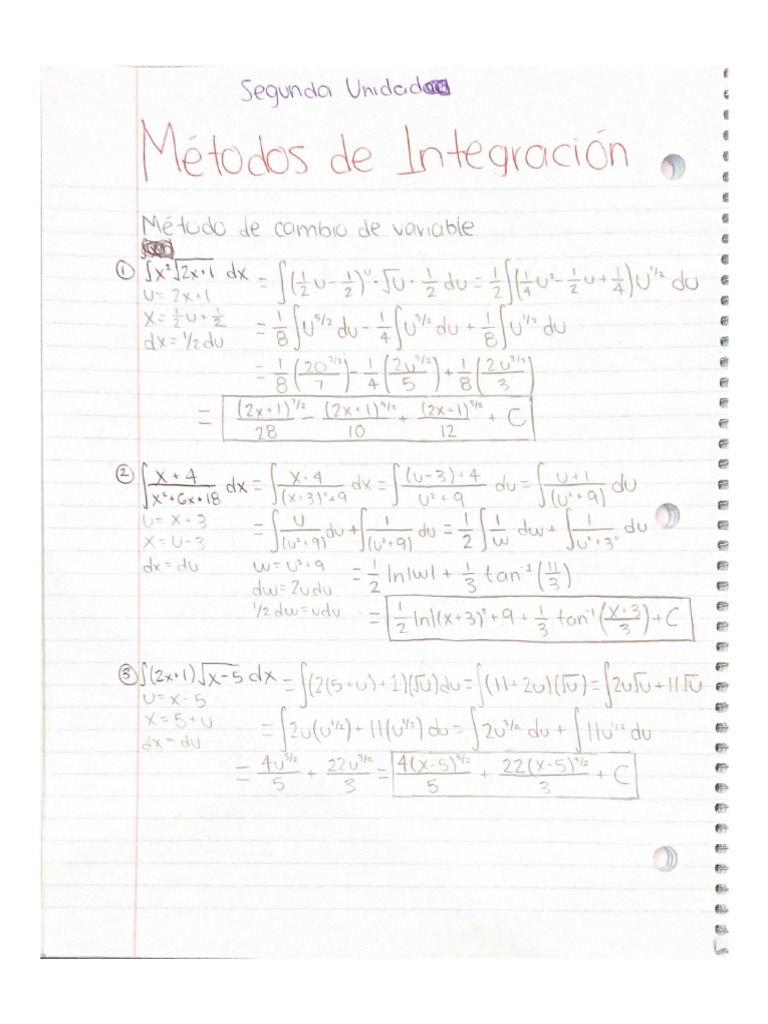 Segunda Unidad
Métodos de Integración
Método de cambio de variable
① ∫x²√(2x+1) dx = ∫(½u - ½)ᵘ · √u · ½ du = ½∫(¼u² - ½u + ¼)u^(1/2) du
u = 2x+1
x = ½u + ½ = ⅛∫u^(5/2) du - ¼∫u^(3/2) du + ⅛∫u^(1/2) du
dx = 1/2 du
= ⅛(2u^(7/2)/7) - ¼(2u^(5/2)/5) + ⅛(2u^(3/2)/3)
= (2x+1)^(7/2)/28 - (2x+1)^(5/2)/10 + (2x+1)^(3/2)/12 + C
② ∫(x+4)/(x²+6x+18) dx = ∫(x+4)/((x+3)²+9) dx = ∫((u-3)+4)/(u²+9) du = ∫(u+1)/(u²+9) du
u = x+3
x = u-3 = ∫u/(u²+9) du + ∫1/(u²+9) du = ½∫1/w dw + ∫1/(u²+3²) du
dx = du w = u²+9 = ½ ln|w| + ⅓ tan⁻¹(11/3)
dw = 2u du
1/2 dw = u du = ½ ln|(x+3)²+9 + ⅓ tan⁻¹((x+3)/3) + C
③ ∫(2x+1)√(x-5) dx = ∫(2(5+u)+1)(√u) du = ∫(11+2u)(√u) = ∫2u√u + 11√u
u = x-5
x = 5+u = ∫2u(u^(1/2)) + 11(u^(1/2)) du = ∫2u^(3/2) du + ∫11u^(1/2) du
dx = du
= 4u^(5/2)/5 + 22u^(3/2)/3 = 4(x-5)^(5/2)/5 + 22(x-5)^(3/2)/3 + C